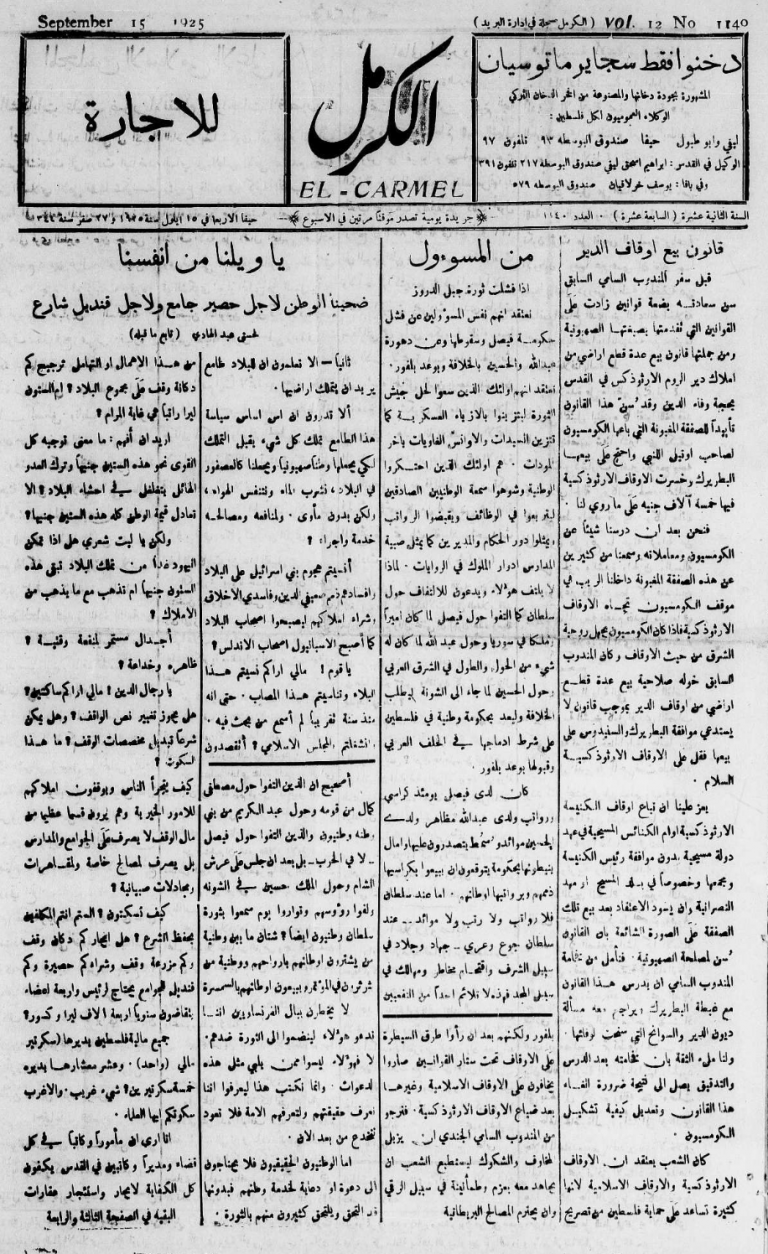 September 15 1925
(الكرمل مسجلة في ادارة البريد) VOL. 12 No 1140
دخنوا فقط سجاير ماتوسيان
المشهورة بجودة دخانها والمصنوعة من افخر الدخان التركي
الوكلاء العموميون لكل فلسطين :
ليفي وابو طبول حيفا صندوق البوسطه ٩٣ تلفون ٩٧
الوكيل في القدس : ابراهيم اسحق ليفي صندوق البوسطه ٢١٧ تلفون ٣٩١
وفي يافا : يوسف خرلاقيان صندوق البوسطه ٥٧٩
الكرمل
EL-CARMEL
للاجارة
السنة الثانية عشرة (السابعة عشرة) العدد ١١٤٠
جريدة يومية تصدر موقتا مرتين في الاسبوع
حيفا الاربعا في ١٥ ايلول سنة ١٩٢٥ و ٢٧ صفر سنة ١٣٤٤
قانون بيع اوقاف الدير
قبل سفر المندوب السامي السابق
سن سعادته بضعة قوانين زادت على
القوانين التي تقدمتها بصبغتها الصهيونية
ومن جملتها قانون بيع عدة قطع اراضي من
املاك دير الروم الارثوذكس في القدس
بحجة وفاء الدين وقد سن هذا القانون
تأييداً للصفقة المغبونة التي باعها الكومسيون
لصاحب اوتيل اللنبي واحتج على بيعها
البطريرك وخسرت الاوقاف الارثوذكسية
فيها خمسة آلاف جنيه على ما روي لنا .
فنحن بعد ان درسنا شيئاً عن
الكومسيون ومعاملاته وسمعنا من كثيرين
عن هذه الصفقة المغبونة داخلنا الريب في
موقف الكومسيون تجاه الاوقاف
الارثوذكسية فاذا كان الكومسيون يجهل روحية
الشرق من حيث الاوقاف وكان المندوب
السابق خوله صلاحية بيع عدة قطع
اراضي من اوقاف الدير بموجب قانون لا
يستدعي موافقة البطريرك والسنيدوس على
بيعها فقل على الاوقاف الارثوذكسية
السلام .
يعز علينا ان تباع اوقاف الكنيسة
الارثوذكسية اوام الكنائس المسيحية في عهد
دولة مسيحية بدون موافقة رئيس الكنيسة
ومجمعها وخصوصاً في بلد المسيح او مهد
النصرانية وان يسود الاعتقاد بعد بيع تلك
الصفقة على الصورة الشائعة بان القانون
سن لمصلحة الصهيونية . فنأمل من فخامة
المندوب السامي ان يدرس هذا القانون
مع غبطة البطريرك ويراجع معه مسألة
ديون الدير والسوانح التي سنحت لوفائها .
ولنا ملء الثقة بان فخامته بعد الدرس
والتدقيق يصل الى نتيجة ضرورة الغاء
هذا القانون وتعديل كيفية تشكيل
الكومسيون .
كان الشعب يعتقد ان الاوقاف
الارثوذكسية والاوقاف الاسلامية لانها
كثيرة تساعد على حماية فلسطين من تصريح
من المسوءول
اذا فشلت ثورة جبل الدروز
نعتقد انهم نفس المسؤولين عن فشل
حكومة فيصل وسقوطها وعن دهورة
عبدالله والحسين بالخلافة وبوعد بلفور .
نعتقد انهم اولئك الذين سعوا لحل جيش
الثورة ليتزينوا بالازياء العسكرية كما
تتزين السيدات والاوانس الغاويات بآخر
المودات . هم اولئك الذين احتكروا
الوطنية وشوهوا سمعة الوطنيين الصادقين
ليتربعوا في الوظائف ويقبضوا الرواتب
ويمثلوا دور الحكام والمديرين كما يمثل صبية
المدارس ادوار الملوك في الروايات . لماذا
لا يلتف هؤلاء ويدعون للالتفاف حول
سلطان كما التفوا حول فيصل لما كان اميراً
وملكا في سوريا وحول عبد الله لما كان له
شيء من الحول والطول في الشرق العربي
وحول الحسين لما جاء الى الشونة ليطلب
الخلافة وليعد بحكومة وطنية في فلسطين
على شرط ادماجها في الحلف العربي
وقبولها بوعد بلفور .
كان لدى فيصل يومئذ كراسي
ورواتب ولدى عبدالله مظاهر ولدى
الحسين موائد وسفط يتصدرون عليها وامال
ينيطونها بحكومة يتوقعون ان يبيعوا بكراسيها
ذممهم وبرواتبها اوطانهم . اما عند سلطان
فلا رواتب ولا رتب ولا موائد .. عند
سلطان جوع وعري .. جهاد وجلاد في
سبيل الشرف واقتحام مخاطر ومهالك في
سبيل المجد فهذه لا تلائم احداً من النفعيين
بلفور ولكنهم بعد ان رأوا طرق السيطرة
على الاوقاف تحت ستار القوانين صاروا
يخافون على الاوقاف الاسلامية وغيرها
بعد ضياع الاوقاف الارثوذكسية . فنرجو
من المندوب السامي الجندي ان يزيل
المخاوف والشكوك ليستطيع الشعب ان
يجاهد معه بعزم وطمأنينة في سبيل الرقي
وان يحترم المصالح البريطانية
يا ويلنا من أنفسنا
ضحينا الوطن لاجل حصير جامع ولاجل قنديل شارع
لحسني عبد الهادي (تابع ما قبله)
ثانياً - الا تعلمون ان للبلاد طامع
يريد ان يتملك اراضيها .
ألا تدرون ان اس اساس سياسة
هذا الطامع تملك كل شيء يقبل التملك
لكي يجعلها وطنا صهيونياً ويجعلنا كالعصفور
في البلاد ، نشرب الماء ونتنفس الهواء ،
ولكن بدون مأوى . ولمنافعه ومصالحه
خدمة واجراء ؟
أفسيتم هجوم بني اسرائيل على البلاد
وافساد ذمم ضعيفي الدين وفاسدي الاخلاق
وشراء املاكهم ليصبحوا اصحاب البلاد
كما أصبح الاسبانيول اصحاب الاندلس ؟
يا قوم ! مالي اراكم نسيتم هذا
البلاء وتناسيتم هذا المصاب . حتى انه
منذ سنة تقريباً لم أسمع من بحث فيه .
وانشغلتم بالمجلس الاسلامي ؟ أتقصدون
أصحيح ان الذين التفوا حول مصطفى
كمال من قومه وحول عبد الكريم من بني
وطنه وطنيون والذين التفوا حول فيصل
.. لا في الحرب .. بل بعد ان جلس على عرش
الشام وحول الملك حسين في الشونه
ولفوا رؤوسهم وتواروا يوم سمعوا بثورة
سلطان وطنيون ايضاً ؟ شتان ما بين وطنية
من يشترون اوطانهم بارواحهم ووطنية من
يثرثرون في المؤتمر ويبيعون اوطانهم بالسمسرة
لا يخطرن ببال الفرنساويين اننا
ندعو هؤلاء لينضموا الى الثورة ضدهم .
لا فهؤلاء ليسوا ممن يلبي مثل هذه
الدعوات . وانما نكتب هذا ليعرفوا اننا
نعرف حقيقتهم ولتعرفهم الامة فلا تعود
تنخدع من بعد الان .
اما الوطنيون الحقيقيون فلا يحتاجون
الى دعوة او دعاية لخدمة وطنهم فبدونها
قد التحق ويلتحق كثيرون منهم بالثورة .
من هذا الاهمال او التهامل ترجيح كم
دكانة وقف على مجموع البلاد ؟ ام الستون
ليرا راتباً هي غاية المرام ؟
اريد ان أفهم : ما معنى توجيه كل
القوى نحو هذه الستين جنيهاً وترك العدو
الهائل يتغلغل في احشاء البلاد ؟ الا
تعادل قيمة الوطن كله هذه الستين جنيها ؟
ولكن يا ليت شعري هل اذا تمكن
اليهود غداً من تملك البلاد تبقى هذه
الستون جنيها ام تذهب مع ما يذهب من
الاملاك ؟
أجدال مستمر لمنفعة وقتية ؟
ظاهره وخداعة ؟
يا رجال الدين ! مالي اراكم ساكتين ؟
هل يجوز تغيير نص الواقف ؟ وهل يمكن
شرعاً تبديل مخصصات الوقف ؟ ما هذا
السكوت ؟
كيف يتجرأ الناس ويوقفون املاكهم
للامور الخيرية وهم يرون قسما عظيما من
مال الوقف لا يصرف على الجوامع والمدارس
بل يصرف لمصالح خاصة ولمقاهرات
ومجادلات صبيانية ؟
كيف تسكتون ؟ الستم انتم المكلفين
بحفظ الشرع ؟ هل ايجار كم دكان وقف
وكم مزرعة وقف وشراء كم حصيرة وكم
قنديل للجوامع يحتاج لرئيس واربعة اعضاء
يتقاضون سنوياً اربعة الاف ليرا وكسور ؟
جميع مالية فلسطين يديرها (سكرتير
مالي (واحد) . وعشر معشارها يديره
خمسة سكرتيرين ؟ شيء غريب . والاغرب
سكوتكم ايها العلماء .
انا ارى ان مأموراً وكاتباً في كل
قضاء ومديراً وكاتبين في القدس يكفون
كل الكفاية لايجار واستئجار عقارات
البقيه في الصفحة الثالثة والرابعة